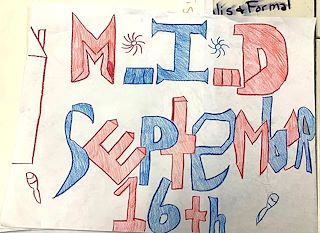 lis & Formal
M_I_D
SEpteMbaR
16th